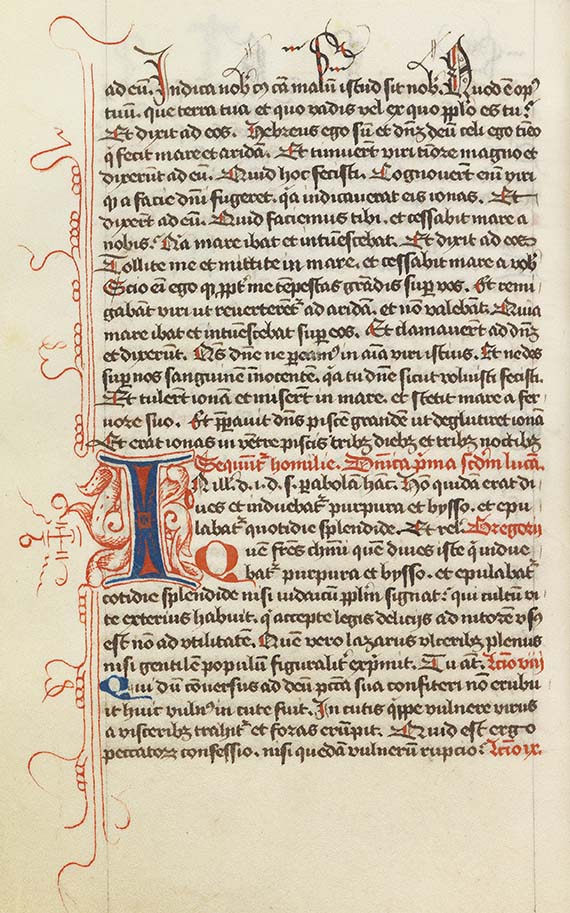 ad eū. Indica nob̄ cȝ cā malū istud sit nob̄. Quod ē opꝰ
tuū. que terra tua et quo vadis vel ex quo pplo es tu:
Et dixit ad eos. Hebreus ego sū et dnȝ deū celi ego tīeo
q̄ fecit mare et aridā. Et timuerūt viri tīore magno et
dixerūt ad eū. Quid hoc fecisti. Cognoverūt enī viri
ꝙ a facie dnī fugeret. q̄a indicauerat eis ionas. Et
dixerūt ad eū. Quid faciemus tibi. et cessabit mare a
nobis: Q̄a mare ibat et intūescebat. Et dixit ad eos
Tollite me et mittite in mare. et cessabit mare a vob̄
Scio eī ego ꝙ ꝓpt̄ me tēpestas grādis suꝑ vos. Et remi
gabāt viri ut reuerterētᷣ ad aridā. et nō valebāt. Quia
mare ibat et intūescebat suꝑ eos. Et clamauerūt ad dnȝ
et dixerūt. Q̄s dn̄e ne ꝑeamꝰ in aīa viri istius. Et ne des
suꝑ nos sanguinē inocentē. q̄a tu dn̄e sicut voluisti fecisti.
Et tulerūt ionā et miserūt in mare. et stetit mare a fer
uore suo. Et p̄ꝑauit dn̄s piscē grandē ut deglutiret ionā
Et erat ionas in vētre piscis tribȝ diebȝ et tribȝ noctibȝ
Sequūtᷣ homilie. Dn̄ica p̄ma scd̄m lucā.
IN ill. d. i. d. s. ꝑabolā hāc. Hō quidā erat di
ues et induebatᷣ purpura et bysso. et epu
labatᷣ quotidie splendide. Et rel. Gregorij
Quē fr̄es c̄hmi quē diues iste q̄ indue
batᷣ purpura et bysso. et epulabatᷣ
cotidie splendide nisi iudaicū pplm̄ signat: qui cultū vi
te exterius habuit. q̄ accepte legis delicijs ad nitorē vsꝰ
est nō ad vtilitatē. Quē vero lazarus vlceribȝ plenus
nisi gentilē populū figuralitᷣ exp̄mit. Tu aūt. Lc̄io viij
Qui dū cōversus ad deū pc̄cta sua confiteri nō erubu
it huic vulnꝰ in cute fuit. In cutis q̄ppe vulnere virus
a visceribȝ trahitᷣ et foras erūpit. Quid est ergo
peccatoꝝ confessio. nisi quedā vulnerū rupcio: Lc̄io ix.